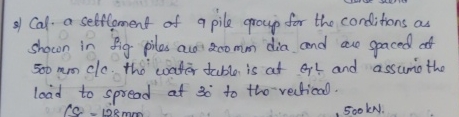 s) Cal. a settlement of a pile group for the conditions as
shown in fig piles are 200 mm dia and are spaced at
500 mm c/c. the water table is at G.L and assume the
load to spread at 30° to the vertical.
= 128mm 500 kN.